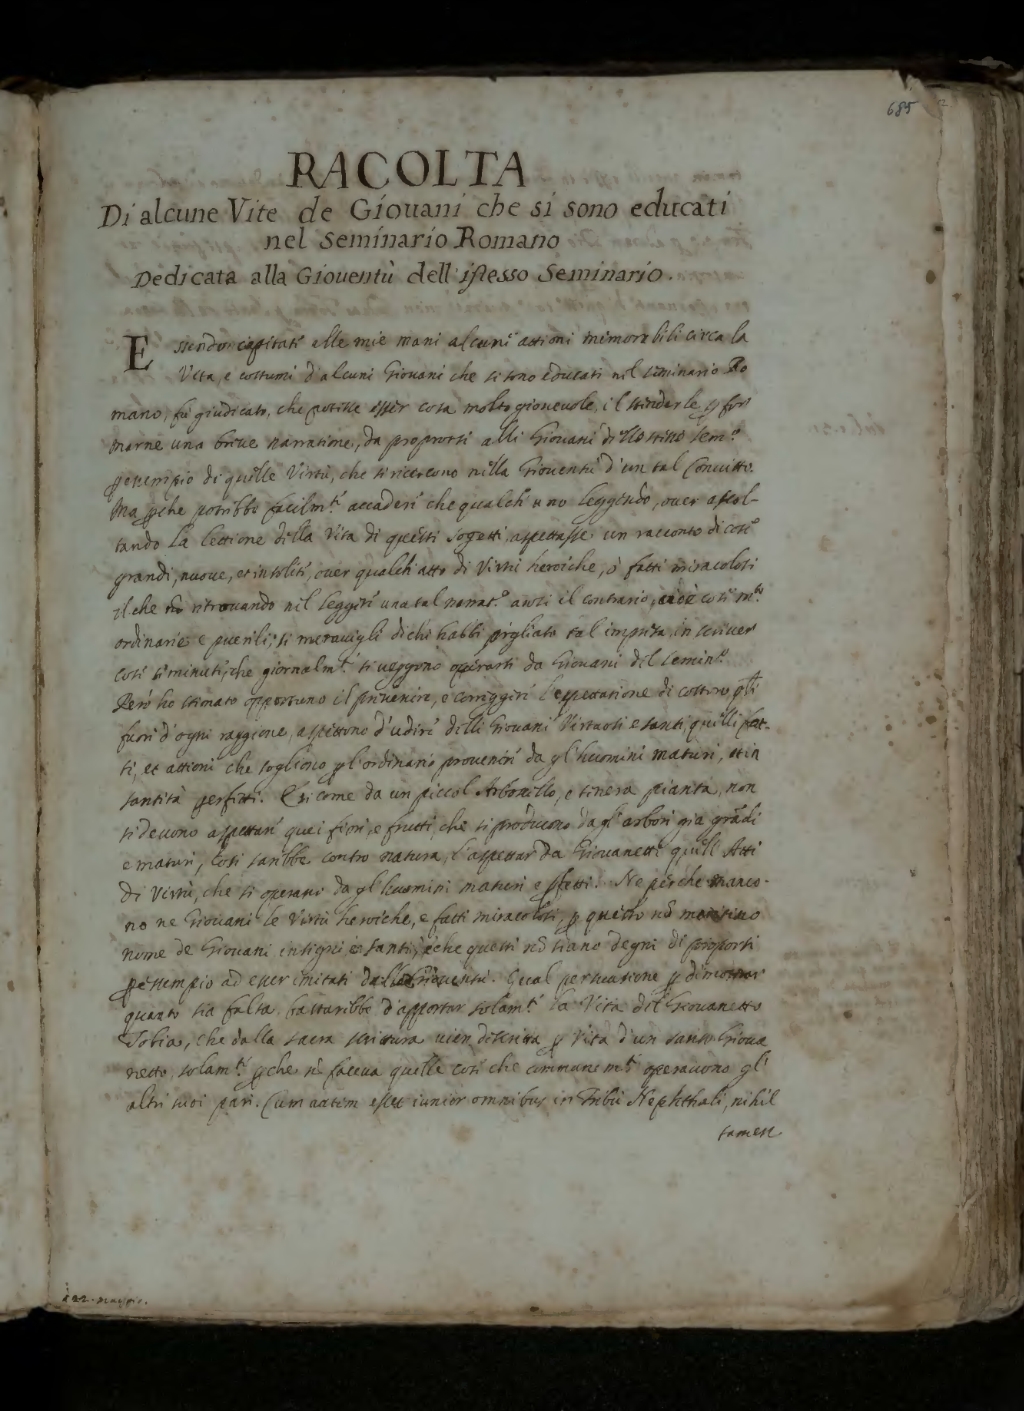 685
RACOLTA
Di alcune Vite de Giouani che si sono educati
nel Seminario Romano
Dedicata alla Giouentù dell'istesso Seminario.
Essendo capitati alle mie mani alcuni attioni memorabili circa la
Vita, e costumi d'alcuni Giouani che si sono educati nel Seminario Ro
mano, fù giudicato, che potesse esser cosa molto gioueuole, il stenderle, p for
marne una breue narratione, da proporsi alli Giouani di sem.º
p essempio di quelle Virtù, che si ricercono nella Giouentù d'un tal Conuitto.
Ma pche potrebbe facilm.te accader che qualch'uno leggendo, ouer ascol-
tando la lettione della Vita di questi sogetti, aspettasse un racconto di cose
grandi, nuoue, et insoliti, ouer qualch'atto di Virtù heroiche, ò fatti miracolosi
il che nõ ritrouando nel leggere una tal narrat.e anzi il contrario, cose m.to
ordinarie e puerili, si merauigli di chi habbi pigliato tal impresa, in scriuer
cose si minuti, che giornalm.te si ueggono operarsi da Giouani del semin.º
Però ho stimato opportuno il preuenire, e correggere l'espettatione di costoro qli
fuori d'ogni raggione, aspettono d'udire delli Giouani Virtuosi e santi, quelli fat-
ti, et attioni che sogliono p l'ordinario prouenire da gl'huomini maturi, et in
santità perfetti. E si come da un piccol Arboscello, e tenera pianta, non
si deuono aspettare quei fiori, e frutti, che si producono dagl'arbori già grãdi
e maturi, così sarebbe contro natura, l'aspettar da Giouanetti quell'Atti
di Virtù, che si operano da gl'huomini maturi e pfetti. Ne perche manco-
no ne Giouani le Virtù heroiche, e fatti miracolosi, p questo nõ meritino
nome de Giouani insigni e santi, e che questi nõ siano degni di proporsi
p essempio ad esser imitati dalla Giouentù. Qual persuasione p dimostrar
quanto sia falsa, bastarebbe d'apportar solam.te la Vita del Giouanetto
Tobia, che dalla sacra scrittura uien descritta p Vita d'un santo Gioua
netto, solam.te pche nõ faceua quelle cose che communem.te operauono gl'
altri suoi pari. Cum autem esset iunior omnibus in Tribu Nephthali, nihil
tamen